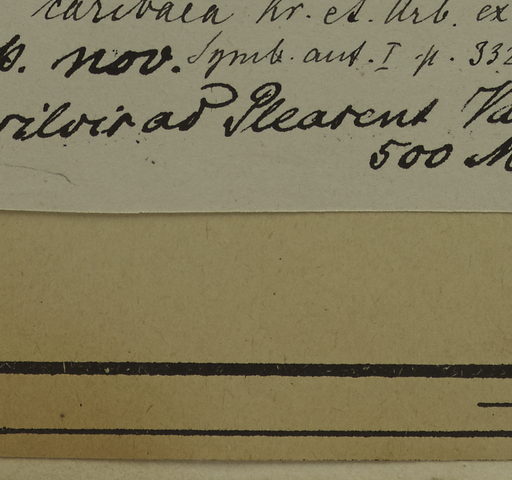 caribaea Kr. et. Urb. ex
p. nov. Symb. ant. I p. 332
ad Pleasent Va
500 M